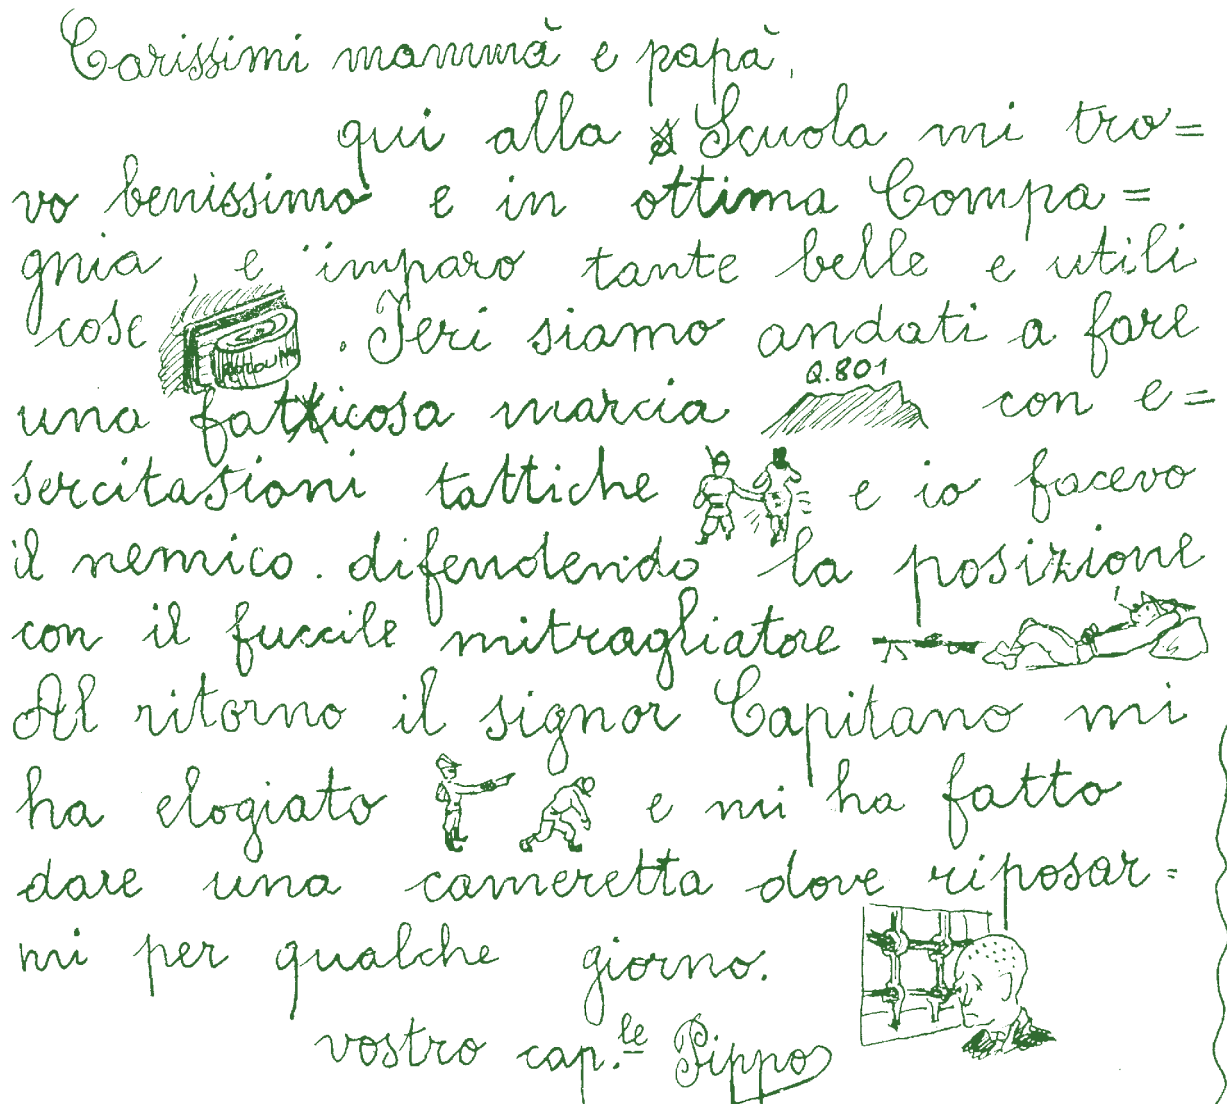 Carissimi mammà e papà,
qui alla Scuola mi tro=
vo benissimo e in ottima Compa=
gnia, e imparo tante belle e utili
cose . Ieri siamo andati a fare
Q.801
una fatticosa marcia con e=
sercitasioni tattiche e io facevo
il nemico. difendendo la posizione
con il fuccile mitragliatore
Al ritorno il signor Capitano mi
ha elogiato e mi ha fatto
dare una cameretta dove riposar=
mi per qualche giorno.
vostro cap.le Pippo